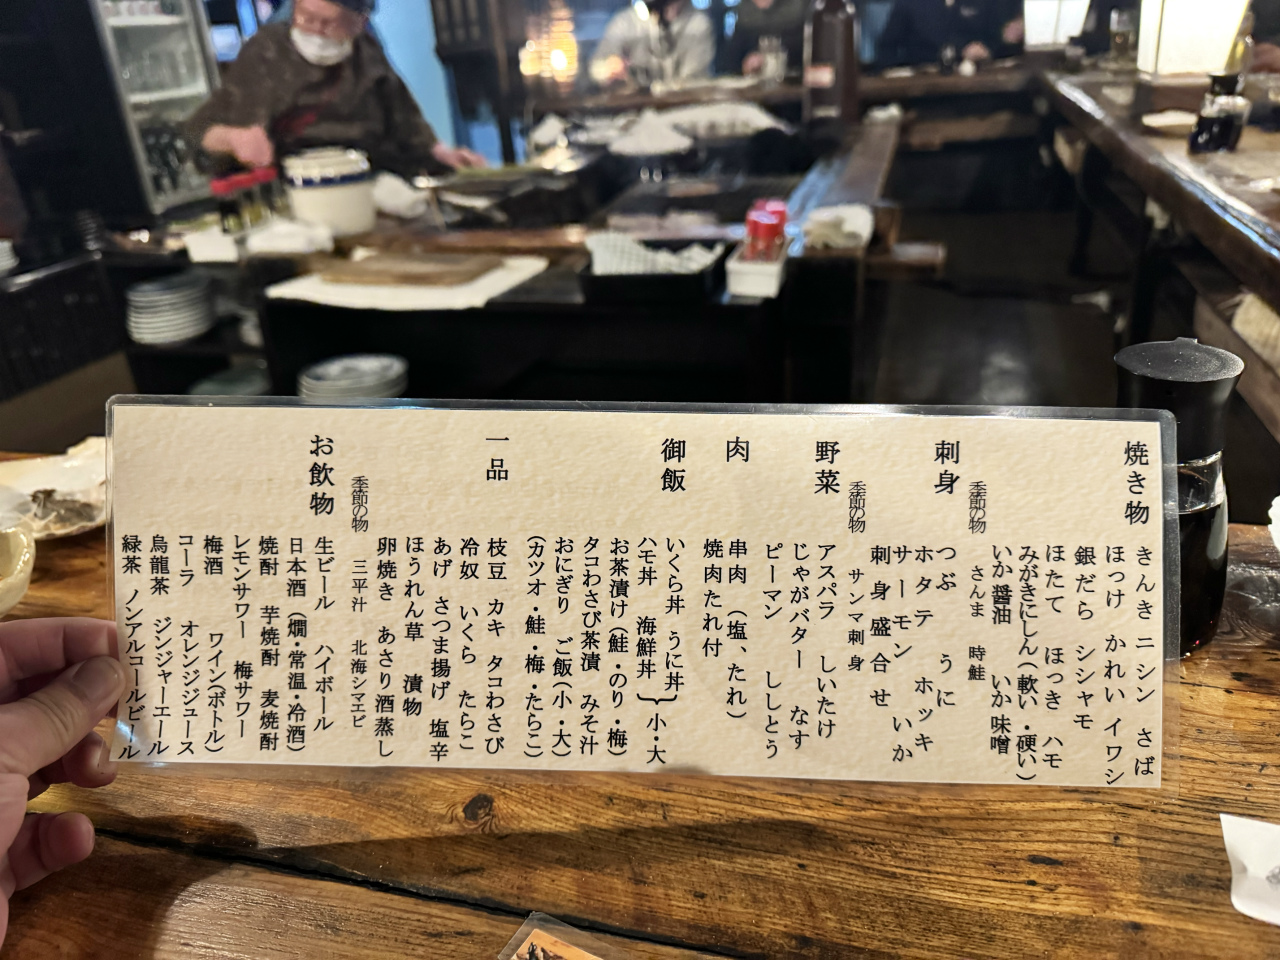 焼き物
きんき ニシン さば
ほっけ かれい イワシ
銀だら シシャモ
ほたて ほっき ハモ
みがきにしん(軟い・硬い)
いか醤油 いか味噌
季節の物 さんま 時鮭
刺身
つぶ うに
ホタテ ホッキ
サーモン いか
刺身盛合せ
季節の物 サンマ刺身
野菜
アスパラ しいたけ
じゃがバター なす
ピーマン ししとう
肉
串肉 (塩、たれ)
焼肉たれ付
御飯
いくら丼 うに丼
ハモ丼 海鮮丼 } 小・大
お茶漬け(鮭・のり・梅)
タコわさび茶漬 みそ汁
おにぎり ご飯(小・大)
(カツオ・鮭・梅・たらこ)
一品
枝豆 カキ タコわさび
冷奴 いくら たらこ
あげ さつま揚げ 塩辛
ほうれん草 漬物
卵焼き あさり酒蒸し
季節の物 三平汁 北海シマエビ
お飲物
生ビール ハイボール
日本酒(燗・常温・冷酒)
焼酎 芋焼酎 麦焼酎
レモンサワー 梅サワー
梅酒 ワイン(ボトル)
コーラ オレンジジュース
烏龍茶 ジンジャーエール
緑茶 ノンアルコールビール